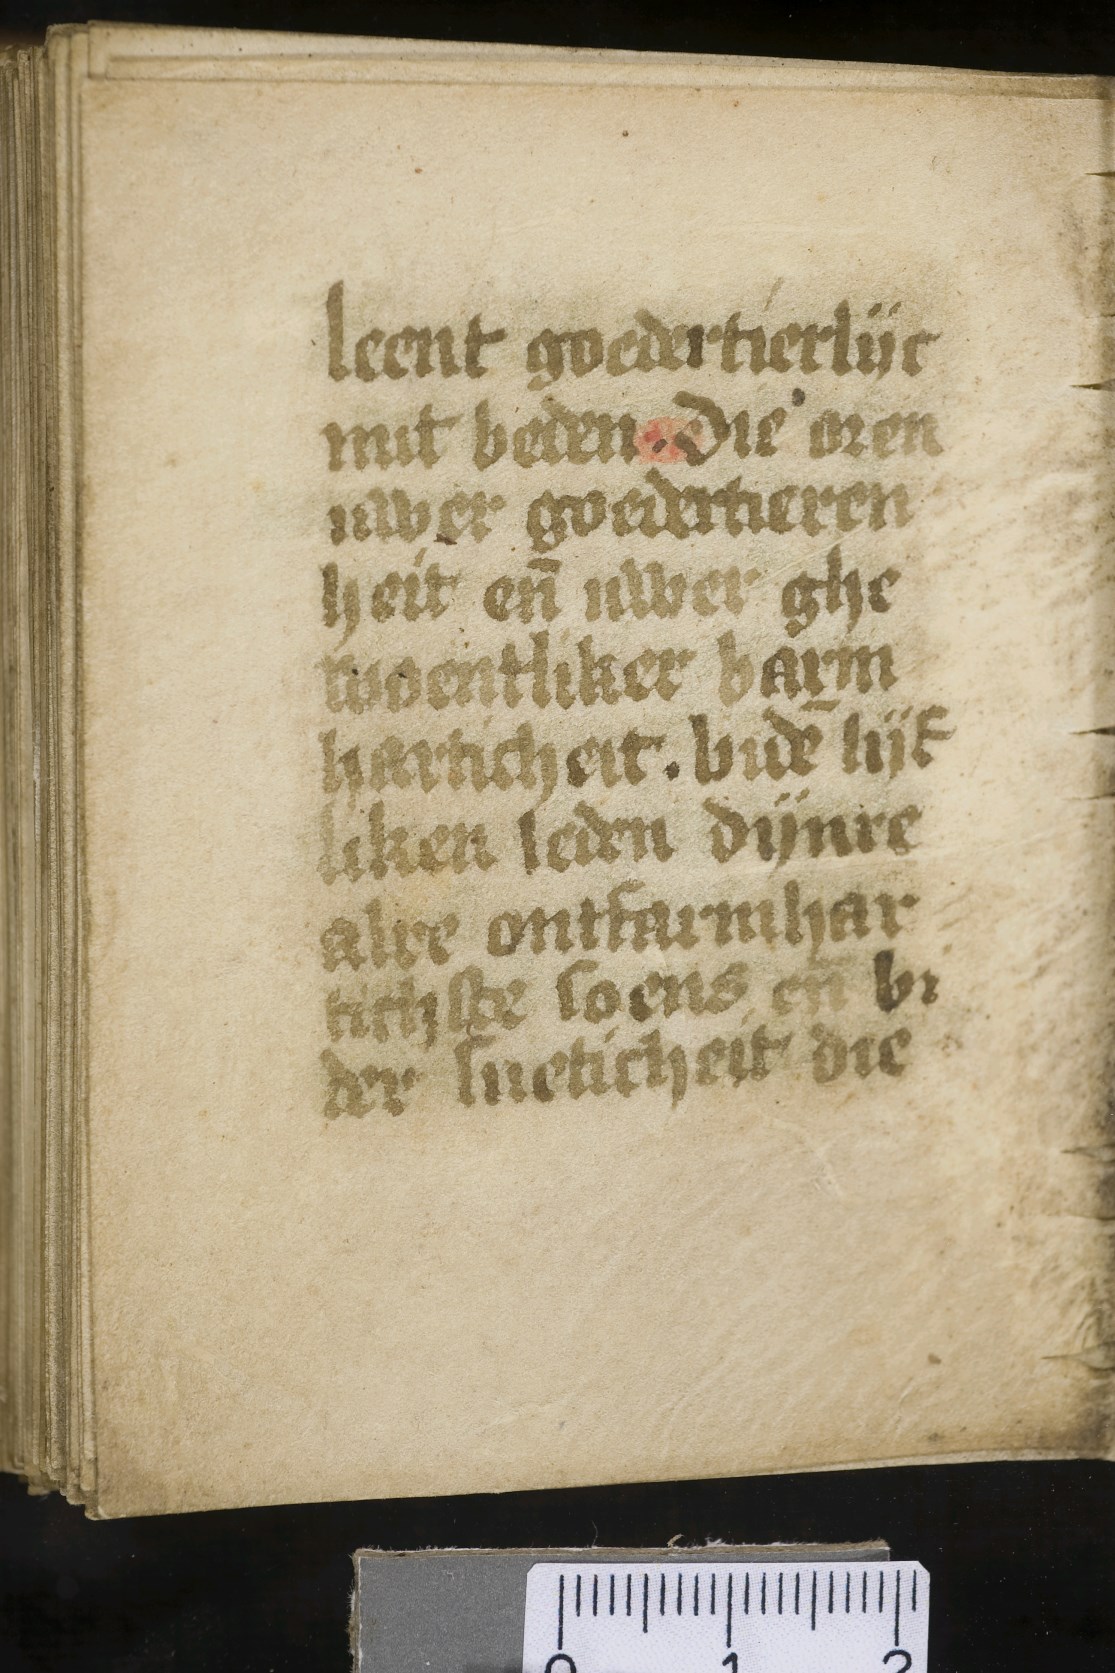 leent goedertierlijc
mit beden. Die oren
uwer goedertieren
heit en̄ uwer ghe
woentliker barm
harticheit. bidē lijf
liken leden dijnre
alre ontfarmhar
tichste soens en̄ bi
der sueticheit die
0 1 2